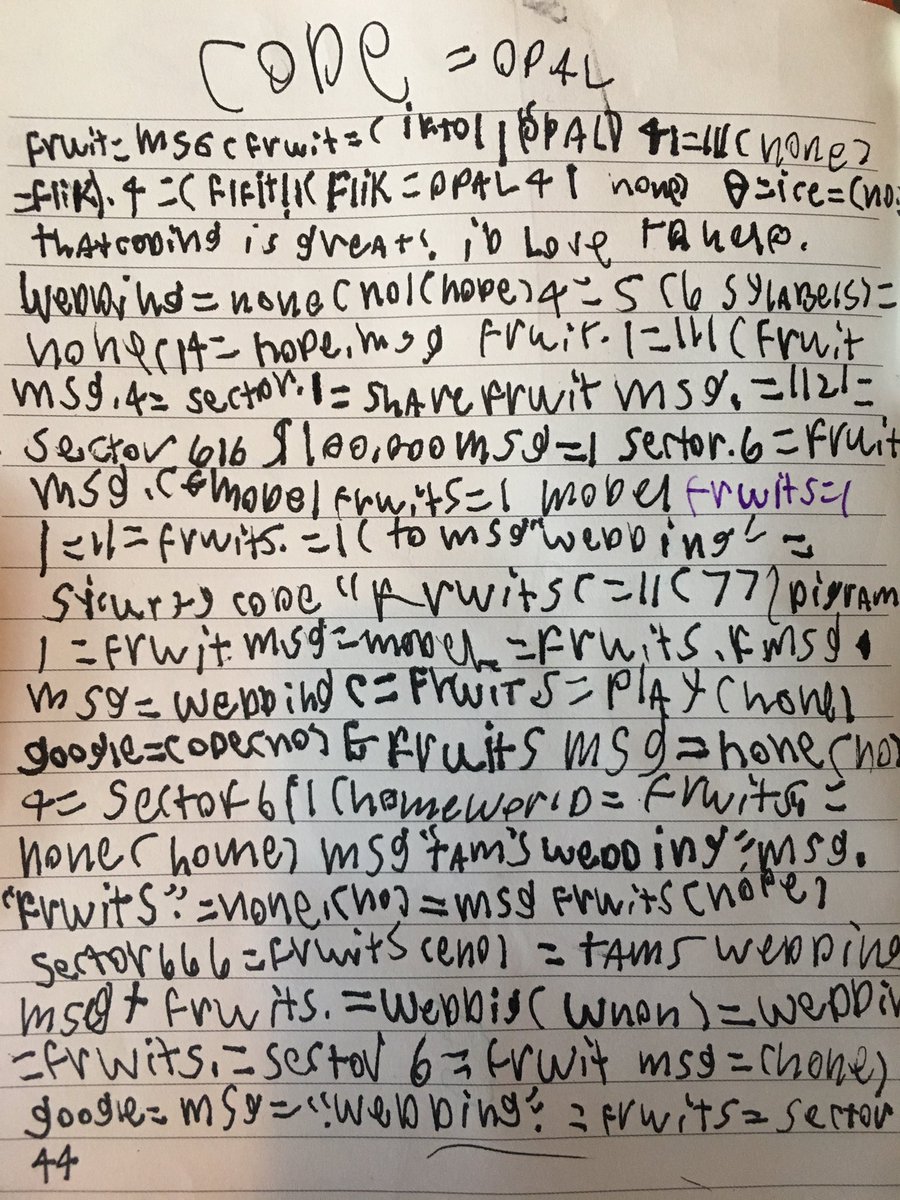 CODE = OPAL
fruit = msg ( fruit = ( OPAL) 41=111( none)
=fliK). 4 =( FliK = OPAL 4 1 none) θ=ice=(no
that coding is great! i'D Love
Wedding = none (no1(hope) 4 = 5 (6 sylabels) =
none (14= hope. msg fruit. 1=111(fruit
msg. 4= sector. 1= share fruit msg. =1121=
Sector 616 $100,000 msg=1 sector. 6 = fruit
msg. model fruits=1 model fruits=1
1=11= fruits. =1( to msg "wedding" =
code "fruits( =11(77)
1 = fruit msg=model =fruits. msg.
msg= wedding C= FRUITS = PlAY (none)
google=code(no) & fruits msg = none (no)
4= Sector 6 (homeworlD= fruits =
none (home) msg "tAm's wedding" msg.
"fruits". =none. (no) = msg fruits (nope)
sector 666 =fruits = tAms wedding
msg + fruits. = = wedding
=fruits. = sector 6 = fruit msg = (none)
google= msg= "wedding". = fruits= sector
44